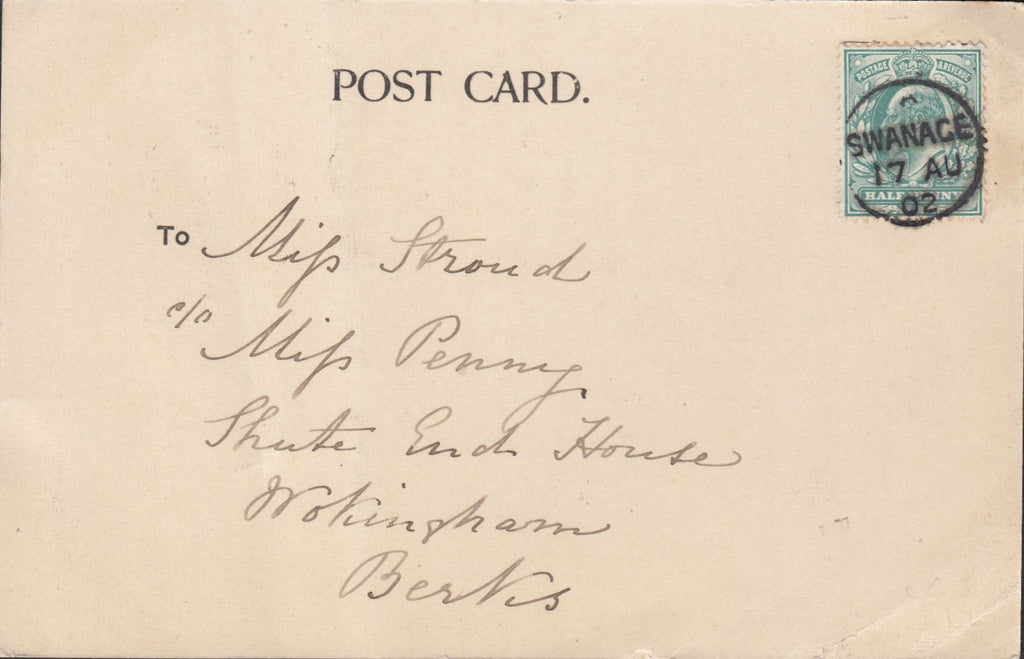 POST CARD.
POSTAGE & REVENUE
SWANAGE
17 AU
02
HALFPENNY
To Miss Stroud
c/o Miss Penny
Shute End House
Wokingham
Berks